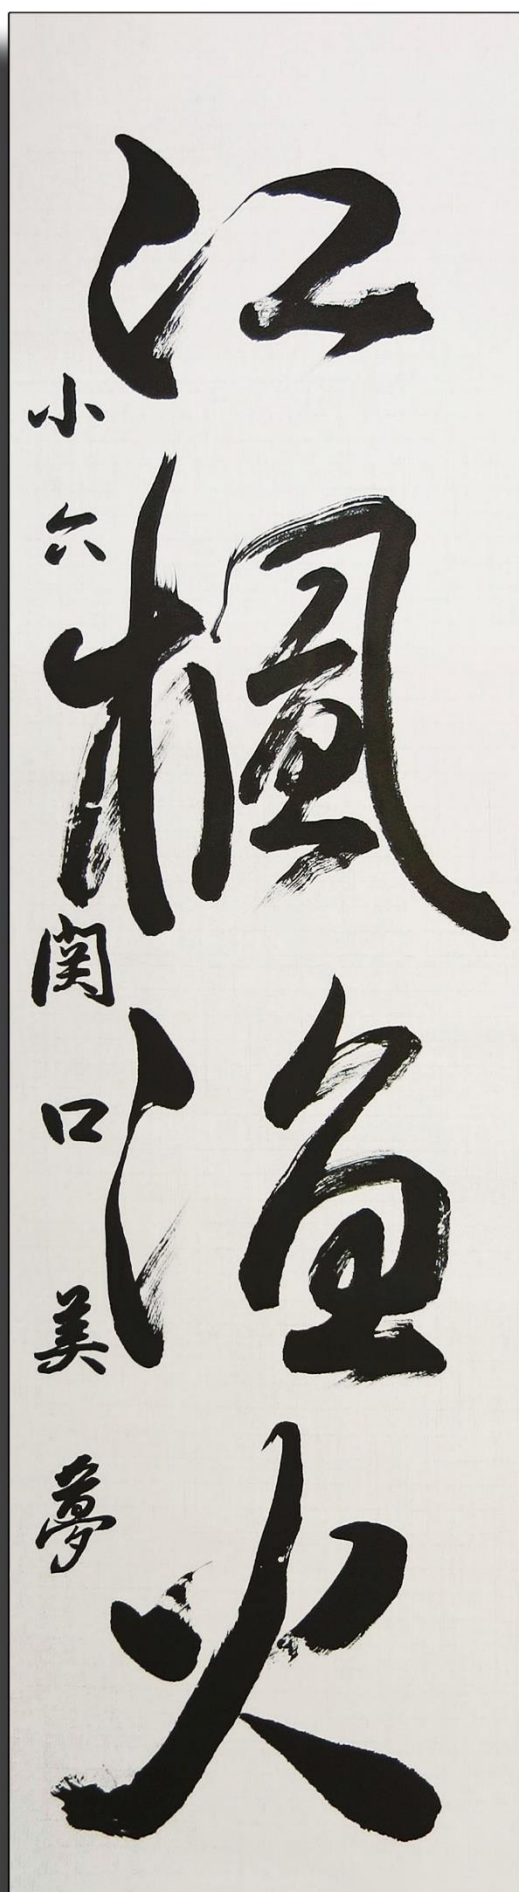 江楓漁火
小六 関口美夢